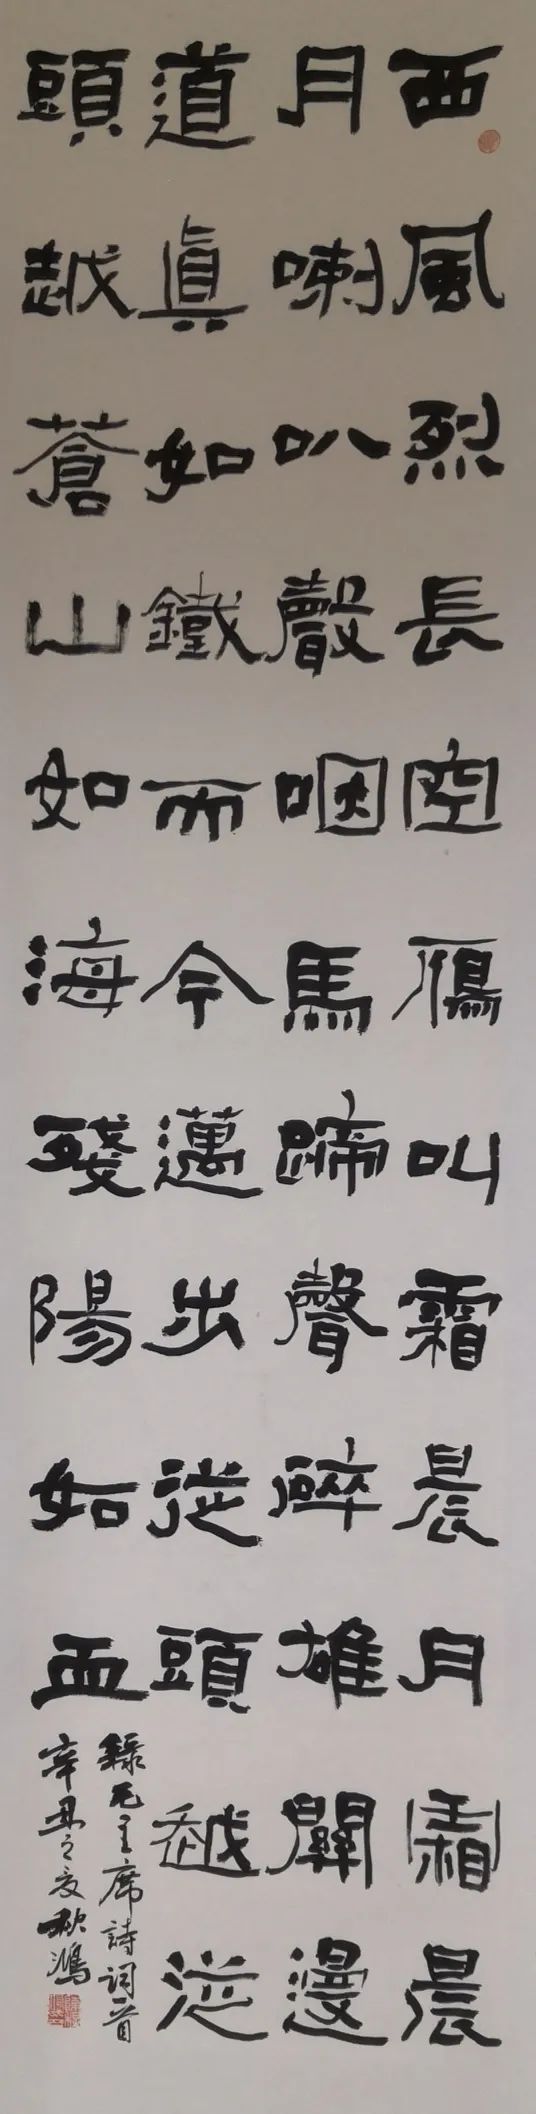 西風烈長空雁叫霜晨月霜晨
月喇叭聲咽馬蹄聲碎雄關漫
道真如鐵而今邁步從頭越從
頭越蒼山如海殘陽如血
錄毛主席詩詞一首
辛丑之夏秋鴻